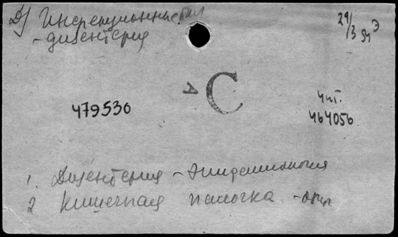 Д) Инфекционные
- дизентерия
29/3 Э
479530
С
А
чит.
464056
1. Дизентерия - Эпидемиология
2 Кишечная палочка -